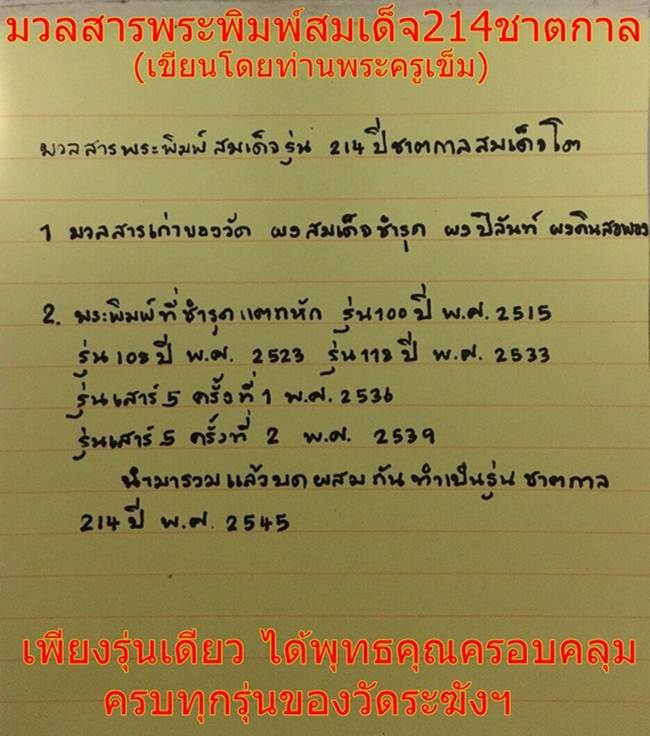 มวลสารพระพิมพ์สมเด็จ214ชาตกาล
(เขียนโดยท่านพระครูเข็ม)
มวลสารพระพิมพ์ สมเด็จรุ่น 214 ปีชาตกาลสมเด็จโต
1 มวลสารเก่าของวัด ผงสมเด็จชำรุด ผงปิลันทน์ ผงดินสอพอง
2. พระพิมพ์ที่ชำรุดแตกหัก รุ่น 100 ปี พ.ศ. 2515
รุ่น 108 ปี พ.ศ. 2523 รุ่น 118 ปี พ.ศ. 2533
รุ่นเสาร์ 5 ครั้งที่ 1 พ.ศ. 2536
รุ่นเสาร์ 5 ครั้งที่ 2 พ.ศ. 2539
นำมารวมแล้วบดผสมกันทำเป็นรุ่น ชาตกาล
214 ปี พ.ศ. 2545
เพียงรุ่นเดียว ได้พุทธคุณครอบคลุม
ครบทุกรุ่นของวัดระฆังฯ